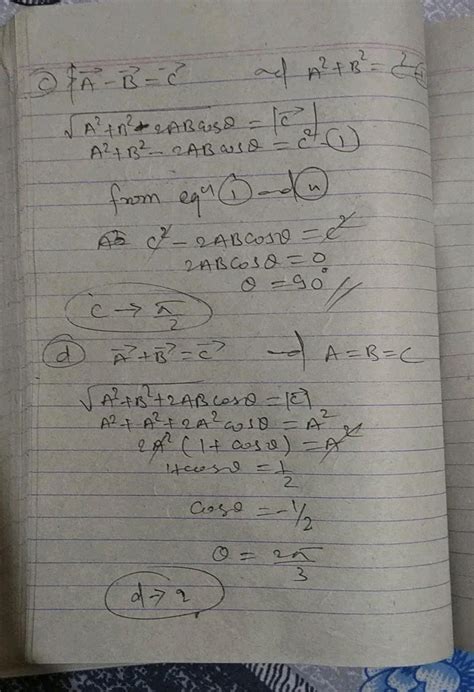 c) |A⃗ - B⃗ = C⃗ and A² + B² = C² - ii
√A² + B² - 2ABcosθ = |C⃗|
A² + B² - 2ABcosθ = C² - ①
from eqⁿ ① and ⑪
C² - 2ABcosθ = C²
2ABcosθ = 0
θ = 90° //
c → π/2
d A⃗ + B⃗ = C⃗ and A = B = C
√A² + B² + 2ABcosθ = |C|
A² + A² + 2A²cosθ = A²
2A² (1 + cosθ) = A²
1 + cosθ = 1/2
cosθ = -1/2
θ = 2π/3
d → 2